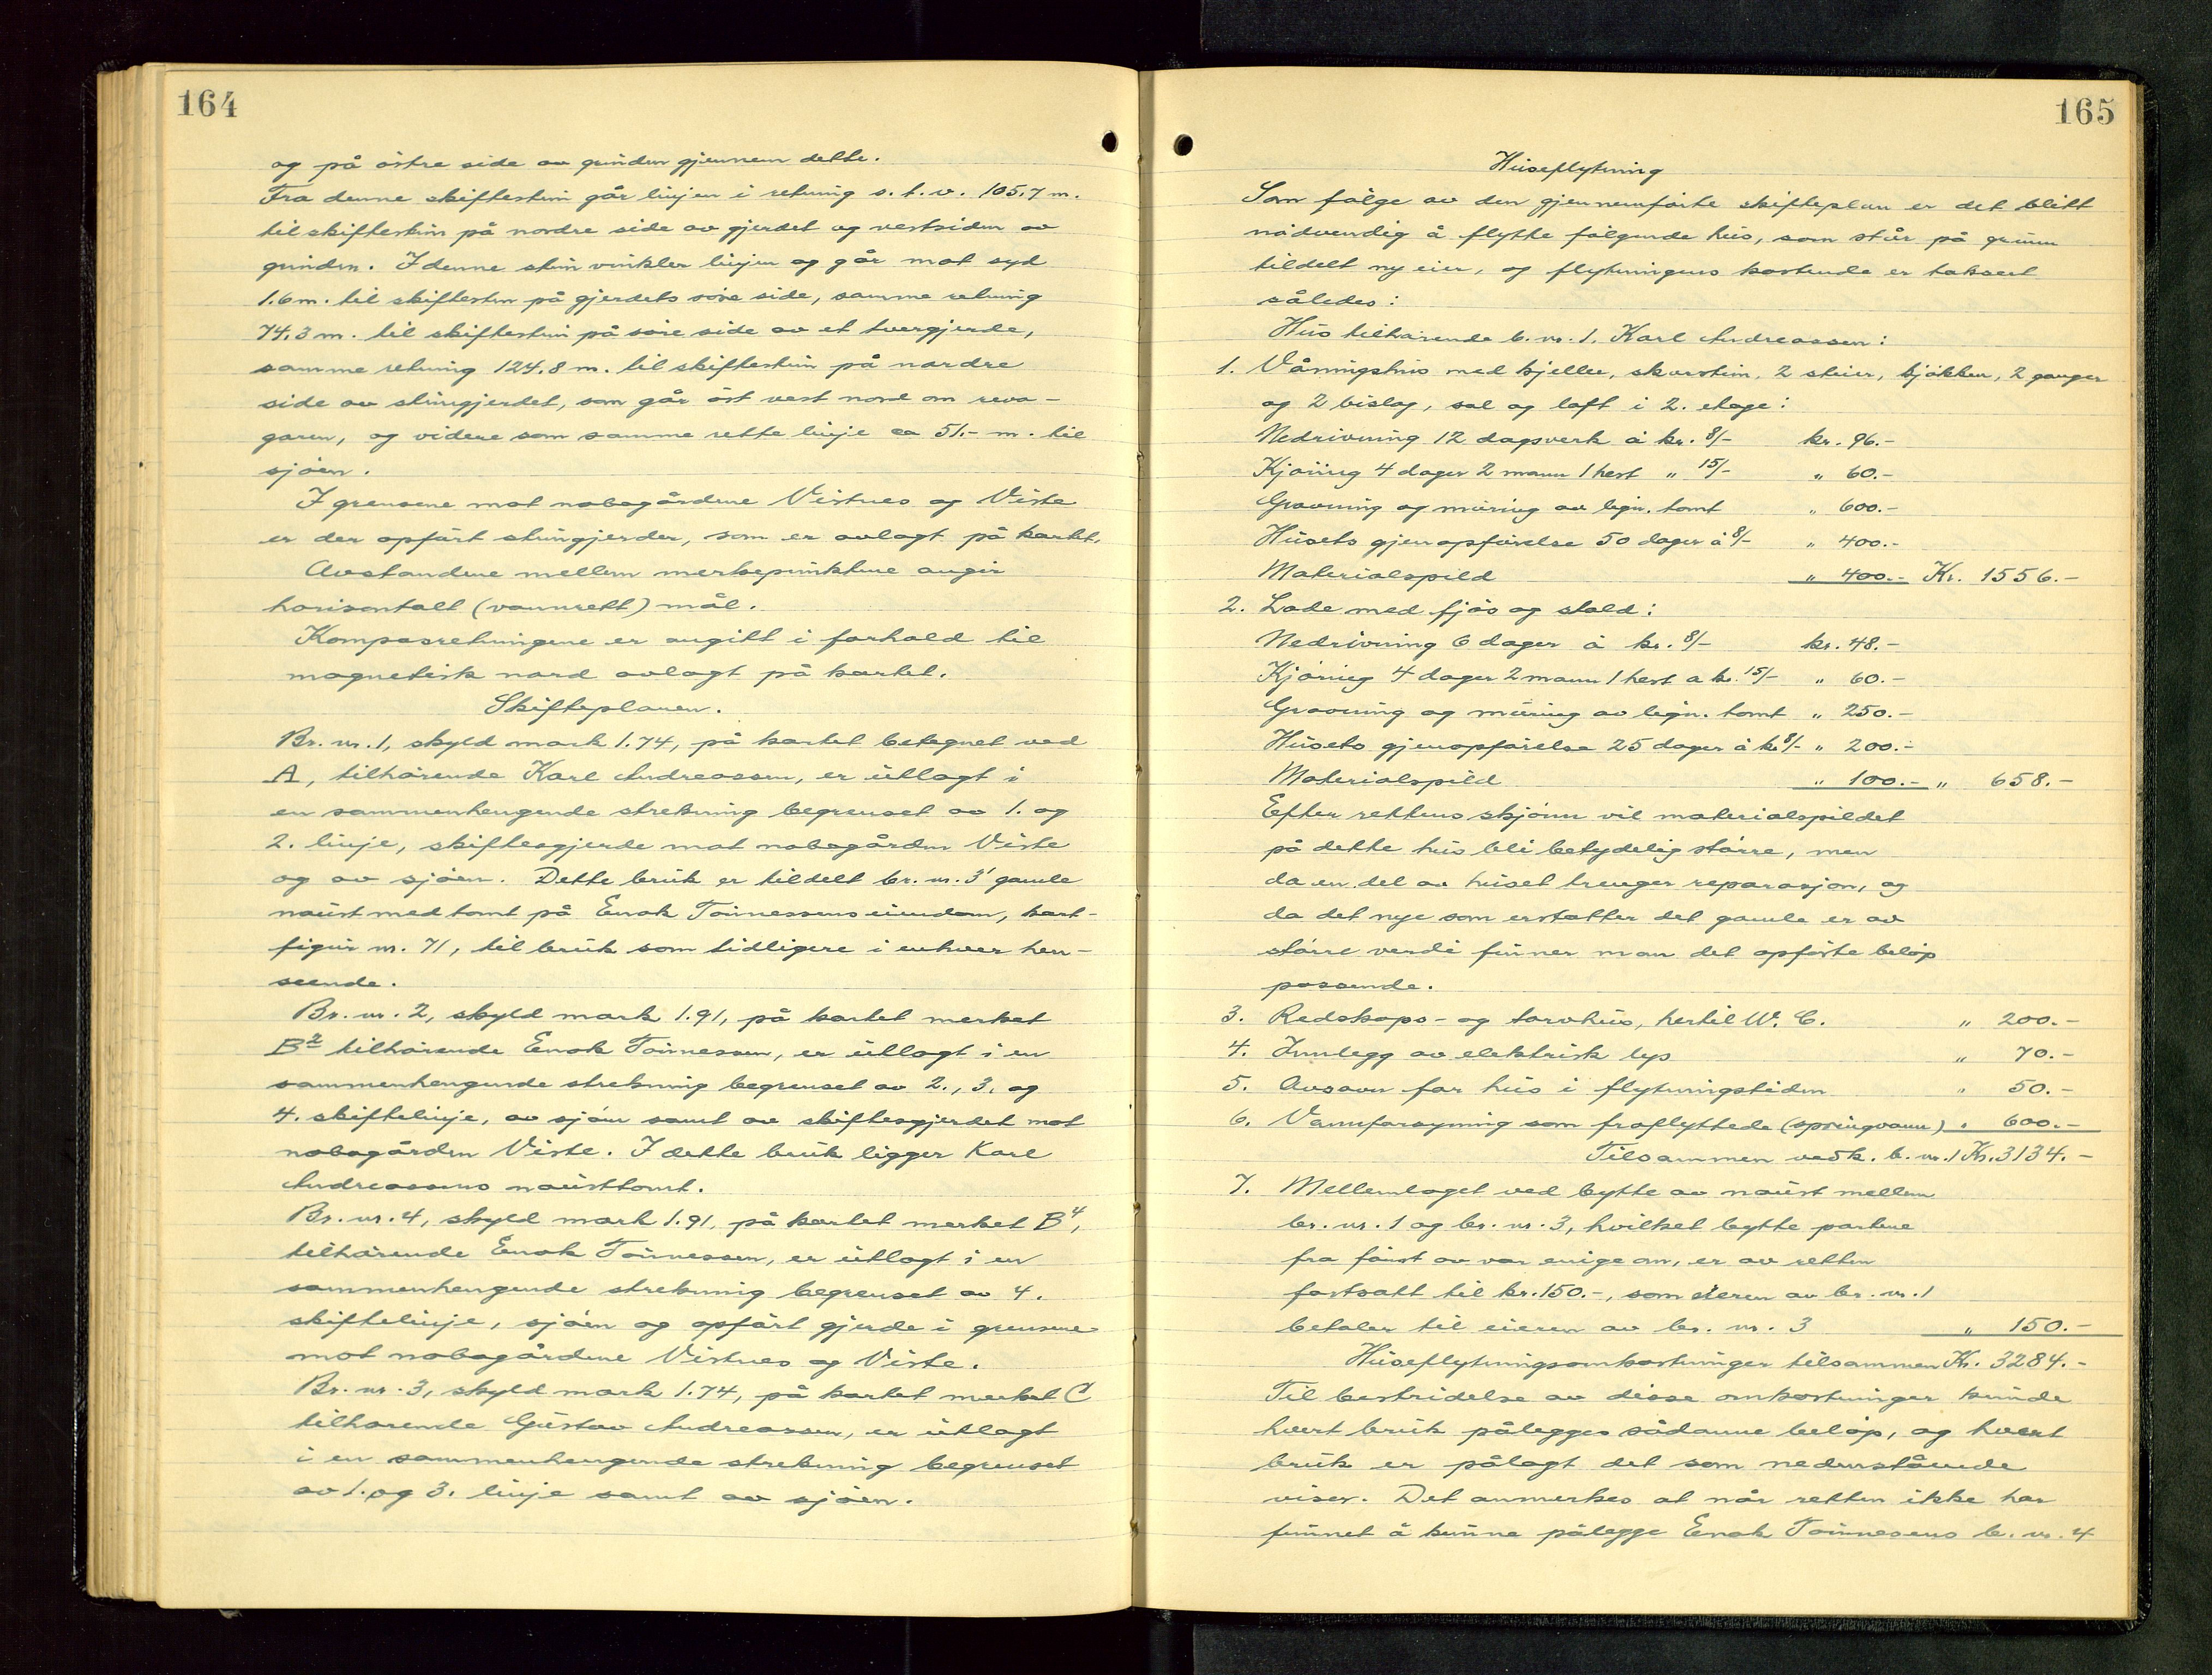 164
og på östre side av grinden gjennem dette.
Fra denne skiftesten går linjen i retning s.t.v. 105.7 m.
til skiftesten på nordre side av gjerdet og vestsiden av
grinden. I denne sten vinkler linjen og går mot syd
1.6 m. til skiftesten på gjerdets söre side, samme retning
74.3 m. til skiftesten på söre side av et tvergjerde,
samme retning 124.8 m. til skiftesten på nordre
side av stengjerdet, som går öst vest nord om reva-
garen, og videre som samme rette linje ca 51.- m. til
sjöen.
I grensene mot nabogårdene Vistnes og Viste
er der opfört stengjerder, som er avlagt på kartet.
Avstandene mellem merkepunktene angir
horisontalt (vannrett) mål.
Kompasretningene er angitt i forhold til
magnetisk nord avlagt på kartet.
Skifteplanen.
Br. nr. 1, skyld mark 1.74, på kartet betegnet ved
A, tilhörende Karl Andreassen, er utlagt i
en sammenhengende strekning begrenset av 1. og
2. linje, skiftesgjerde mot nabogården Viste
og av sjöen. Dette bruk er tildelt br. nr. 3' gamle
naust med tomt på Enok Tönnessens eiendom, kart-
figur nr. 71, til bruk som tidligere i enhver hen-
seende.
Br. nr. 2, skyld mark 1.91, på kartet merket
B2 tilhörende Enok Tönnessen, er utlagt i en
sammenhengende strekning begrenset av 2., 3. og
4. skiftelinje, av sjöen samt av skiftesgjerdet mot
nabogården Viste. I dette bruk ligger Karl
Andreassens nausttomt.
Br. nr. 4, skyld mark 1.91, på kartet merket B4,
tilhörende Enok Tönnessen, er utlagt i en
sammenhengende strekning begrenset av 4.
skiftelinje, sjöen og opfört gjerde i grensene
mot nabogårdene Vistnes og Viste.
Br. nr. 3, skyld mark 1.74, på kartet merket C
tilhörende Gustav Andreassen, er utlagt
i en sammenhengende strekning begrenset
av 1. og 3. linje samt av sjöen.
165
Huseflytning
Som fölge av den gjennemförte skifteplan er det blitt
nödvendig å flytte fölgende hus, som står på grunn
tildelt ny eier, og flytningens kostende er taksert
således:
Hus tilhörende b. nr. 1. Karl Andreassen:
1. Våningshus med kjeller, skorsten, 2 stuer, kjökken, 2 ganger
og 2 bislag, sal og loft i 2. etage:
Nedrivning 12 dagsverk á kr. 8/- kr. 96.-
Kjöring 4 dager 2 mann 1 hest " 15/- " 60.-
Gravning og muring av lign. tomt " 600.-
Husets gjenopförelse 50 dager á 8/- " 400.-
Materialspild " 400.- Kr. 1556.-
2. Lade med fjös og stald:
Nedrivning 6 dager á kr. 8/- kr. 48.-
Kjöring 4 dager 2 mann 1 hest a kr. 15/- " 60.-
Gravning og muring av lign. tomt " 250.-
Husets gjenopförelse 25 dager á kr 8/- " 200.-
Materialspild " 100.- " 658.-
Efter rettens skjönn vil materialspildet
på dette hus bli betydelig större, men
da en del av huset trenger reparasjon, og
da det nye som erstatter det gamle er av
större verdi finner man det opförte belöp
passende.
3. Redskaps- og torvhus, hertil W. C. " 200.-
4. Innlegg av elektrisk lys " 70.-
5. Avsavn for hus i flytningstiden " 50.-
6. Vannforsyning som fraflyttede (springvann) " 600.-
Tilsammen vedk. b. nr. 1 Kr. 3134.-
7. Mellemlaget ved bytte av naust mellem
br. nr. 1 og br. nr. 3, hvilket bytte partene
fra först av var enige om, er av retten
fastsatt til kr. 150.-, som eieren av br. nr. 1
betaler til eieren av br. nr. 3 " 150.-
Huseflytningsomkostninger tilsammen Kr. 3284.-
Til bestridelse av disse omkostninger kunde
hvert bruk pålegges sådanne belöp, og hvert
bruk er pålagt det som nedenstående
viser. Det anmerkes at når retten ikke har
funnet å kunne pålegge Enok Tönnesens b. nr. 4